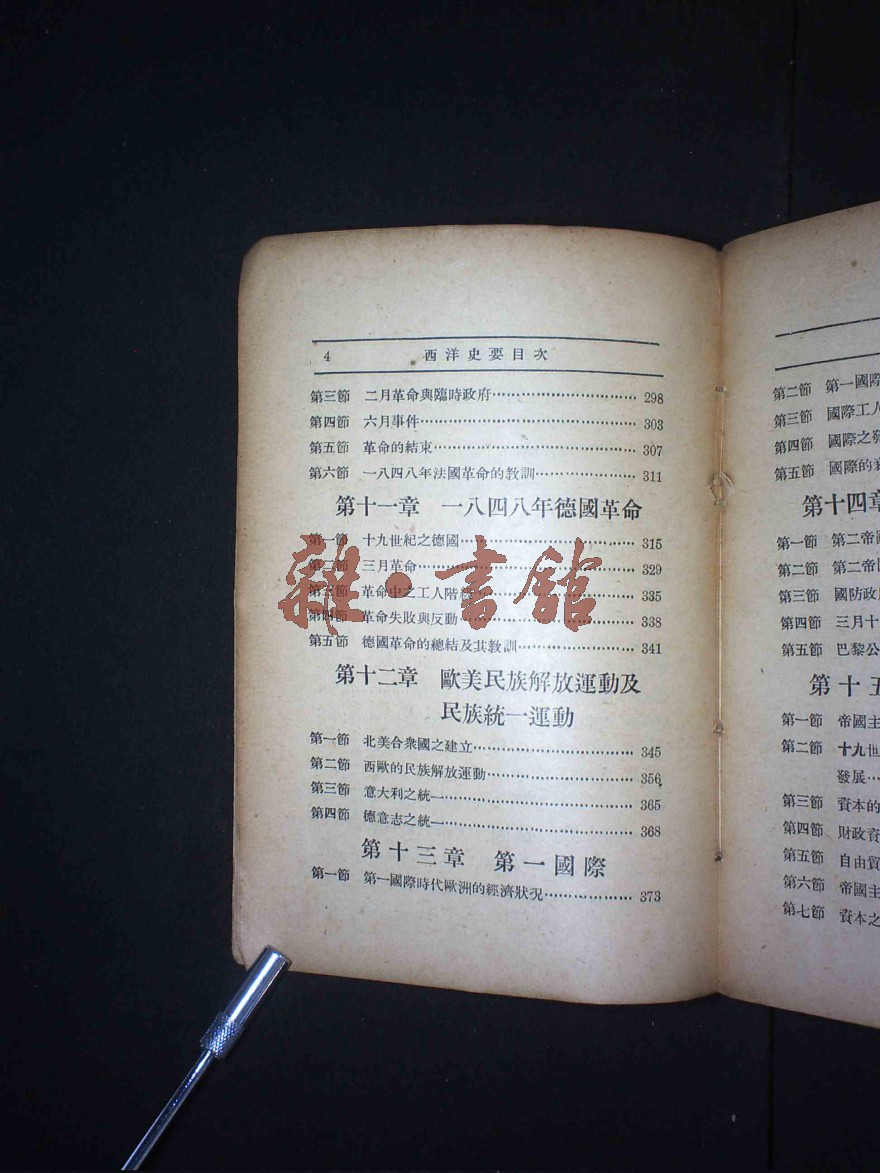 4 西洋史要目次
第三節 二月革命與臨時政府⋯⋯⋯⋯⋯⋯ 298
第四節 六月事件⋯⋯⋯⋯⋯⋯ 303
第五節 革命的結束⋯⋯⋯⋯⋯⋯ 307
第六節 一八四八年法國革命的教訓⋯⋯⋯⋯⋯⋯ 311
第十一章 一八四八年德國革命
第一節 十九世紀之德國⋯⋯⋯⋯⋯⋯ 315
第二節 三月革命⋯⋯⋯⋯⋯⋯ 329
第三節 革命中之工人階級⋯⋯⋯⋯⋯⋯ 335
第四節 革命失敗與反動⋯⋯⋯⋯⋯⋯ 338
第五節 德國革命的總結及其教訓⋯⋯⋯⋯⋯⋯ 341
第十二章 歐美民族解放運動及
民族統一運動
第一節 北美合衆國之建立⋯⋯⋯⋯⋯⋯ 345
第二節 西歐的民族解放運動⋯⋯⋯⋯⋯⋯ 356
第三節 意大利之統一⋯⋯⋯⋯⋯⋯ 365
第四節 德意志之統一⋯⋯⋯⋯⋯⋯ 368
第十三章 第一國際
第一節 第一國際時代歐洲的經濟狀況⋯⋯⋯⋯⋯⋯ 373
雜·書館
第二節 第一國際
第三節 國際工人
第四節 國際之
第五節 國際的
第十四章
第一節 第二帝國
第二節 第二帝
第三節 國防政
第四節 三月十
第五節 巴黎公
第十五
第一節 帝國主
第二節 十九世
發展⋯
第三節 資本的
第四節 財政資
第五節 自由貿
第六節 帝國主
第七節 資本之